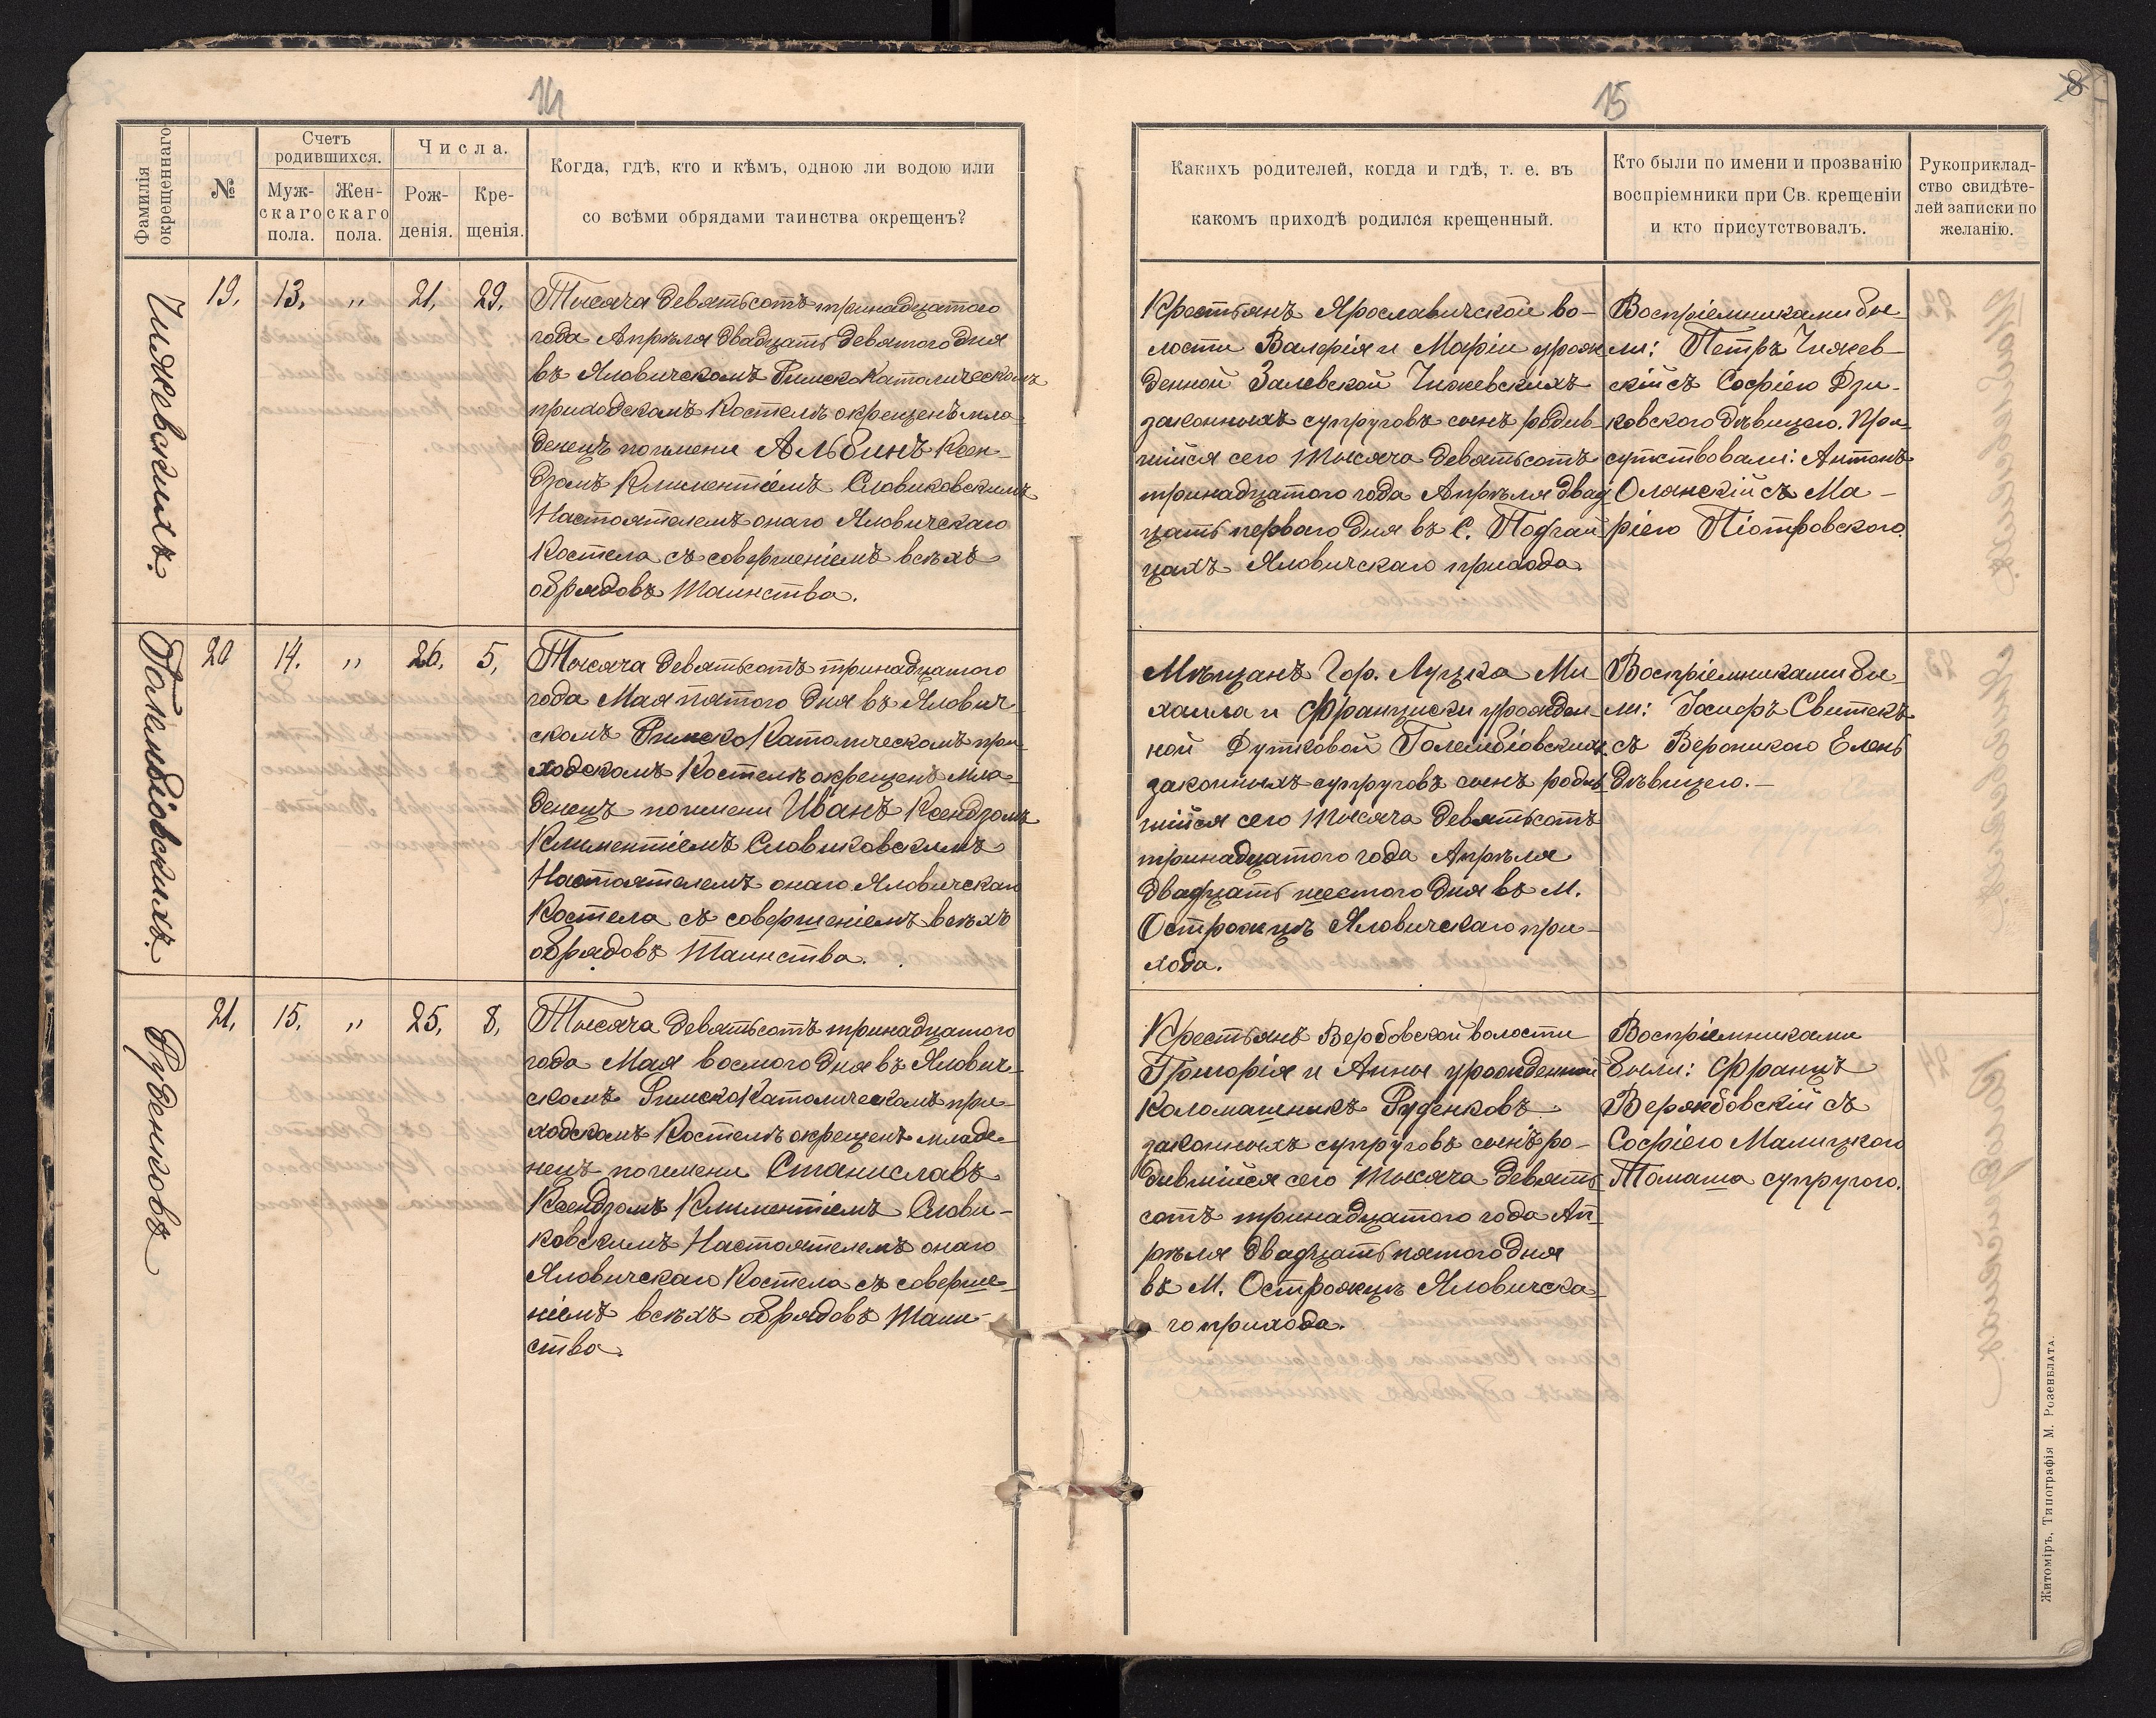 14
Фамилія
окрещеннаго
№
Счетъ
родившихся.
Муж-
скаго
пола.
Жен-
скаго
пола.
Числа.
Рож-
денія.
Кре-
щенія.
Когда, гдѣ, кто и кѣмъ, одною ли водою или
со всѣми обрядами таинства окрещенъ?
Чижевскихъ.
19. 13. „ 21. 29.
Тысяча девятьсотъ тринадцатого
года Апрѣля двадцать девятого дня
въ Яловичскомъ Римско Католическомъ
приходскомъ Костелѣ окрещенъ мла-
денецъ по имени Альбинъ Ксен-
дзомъ Климентіемъ Словиковскимъ
Настоятелемъ онаго Яловичскаго
Костела съ совершеніемъ всѣхъ
обрядовъ Таинства.
Голембіовскихъ.
20 14. „ 26. 5.
Тысяча девятьсотъ тринадцатого
года Мая пятого дня въ Ялович-
скомъ Римско Католическомъ при-
ходскомъ Костелѣ окрещенъ мла-
денецъ по имени Иванъ Ксендзомъ
Климентіемъ Словиковскимъ
Настоятелемъ онаго Яловичскаго
Костела съ совершеніемъ всѣхъ
обрядовъ Таинства.
Руденковъ
21. 15. „ 25. 8.
Тысяча девятьсотъ тринадцатого
года Мая восмого дня въ Ялович-
скомъ Римско Католическомъ при-
ходскомъ Костелѣ окрещенъ младе-
нецъ по имени Станиславъ
Ксендзомъ Климентіемъ Слови-
ковскимъ Настоятелемъ онаго
Яловичскаго Костела съ соверше-
ніемъ всѣхъ обрядовъ Таин-
ства.
15
8
Какихъ родителей, когда и гдѣ, т. е. въ
какомъ приходѣ родился крещенный.
Кто были по имени и прозванію
воспріемники при Св. крещеніи
и кто присутствовалъ.
Рукоприклад-
ство свидѣте-
лей записки по
желанію.
Крестьянъ Ярославичской во-
лости Валерія и Маріи урож-
денной Залевской Чижевскихъ
законныхъ супруговъ сынъ родив-
шійся сего тысяча девятьсотъ
тринадцатого года Апрѣля двад-
цать первого дня въ С. Подгай-
цахъ Яловичскаго прихода.
Воспріемниками бы-
ли: Петръ Чижев-
скій съ Софіею Дзи-
ковского дѣвицею. При-
сутствовали: Антонъ
Олянскій съ Ма-
ріею Піотровского.
Мѣщанъ Гор. Луцка Ми-
хаила и Францишки урожден-
ной Дутковой Голембіовскихъ
законныхъ супруговъ сынъ родив-
шійся сего тысяча девятьсотъ
тринадцатого года Апрѣля
двадцать шестого дня въ М.
Острожцѣ Яловичскаго при-
хода.
Воспріемниками бы-
ли: Іосифъ Свитекъ
съ Вероникою Елень
дѣвицею.-
Крестьянъ Вербовской волости
Григорія и Анны урожденной
Коломашникъ Руденковъ
законныхъ супруговъ сынъ ро-
дившійся сего тысяча девять-
сотъ тринадцатого года Ап-
рѣля двадцать пятого дня
въ М. Острожцѣ Яловичска-
го прихода.
Воспріемниками
были: Францъ
Вержбовскій съ
Софіею Малицкого
Томаша супругою.
Житоміръ, Типографія М. Розенблата.